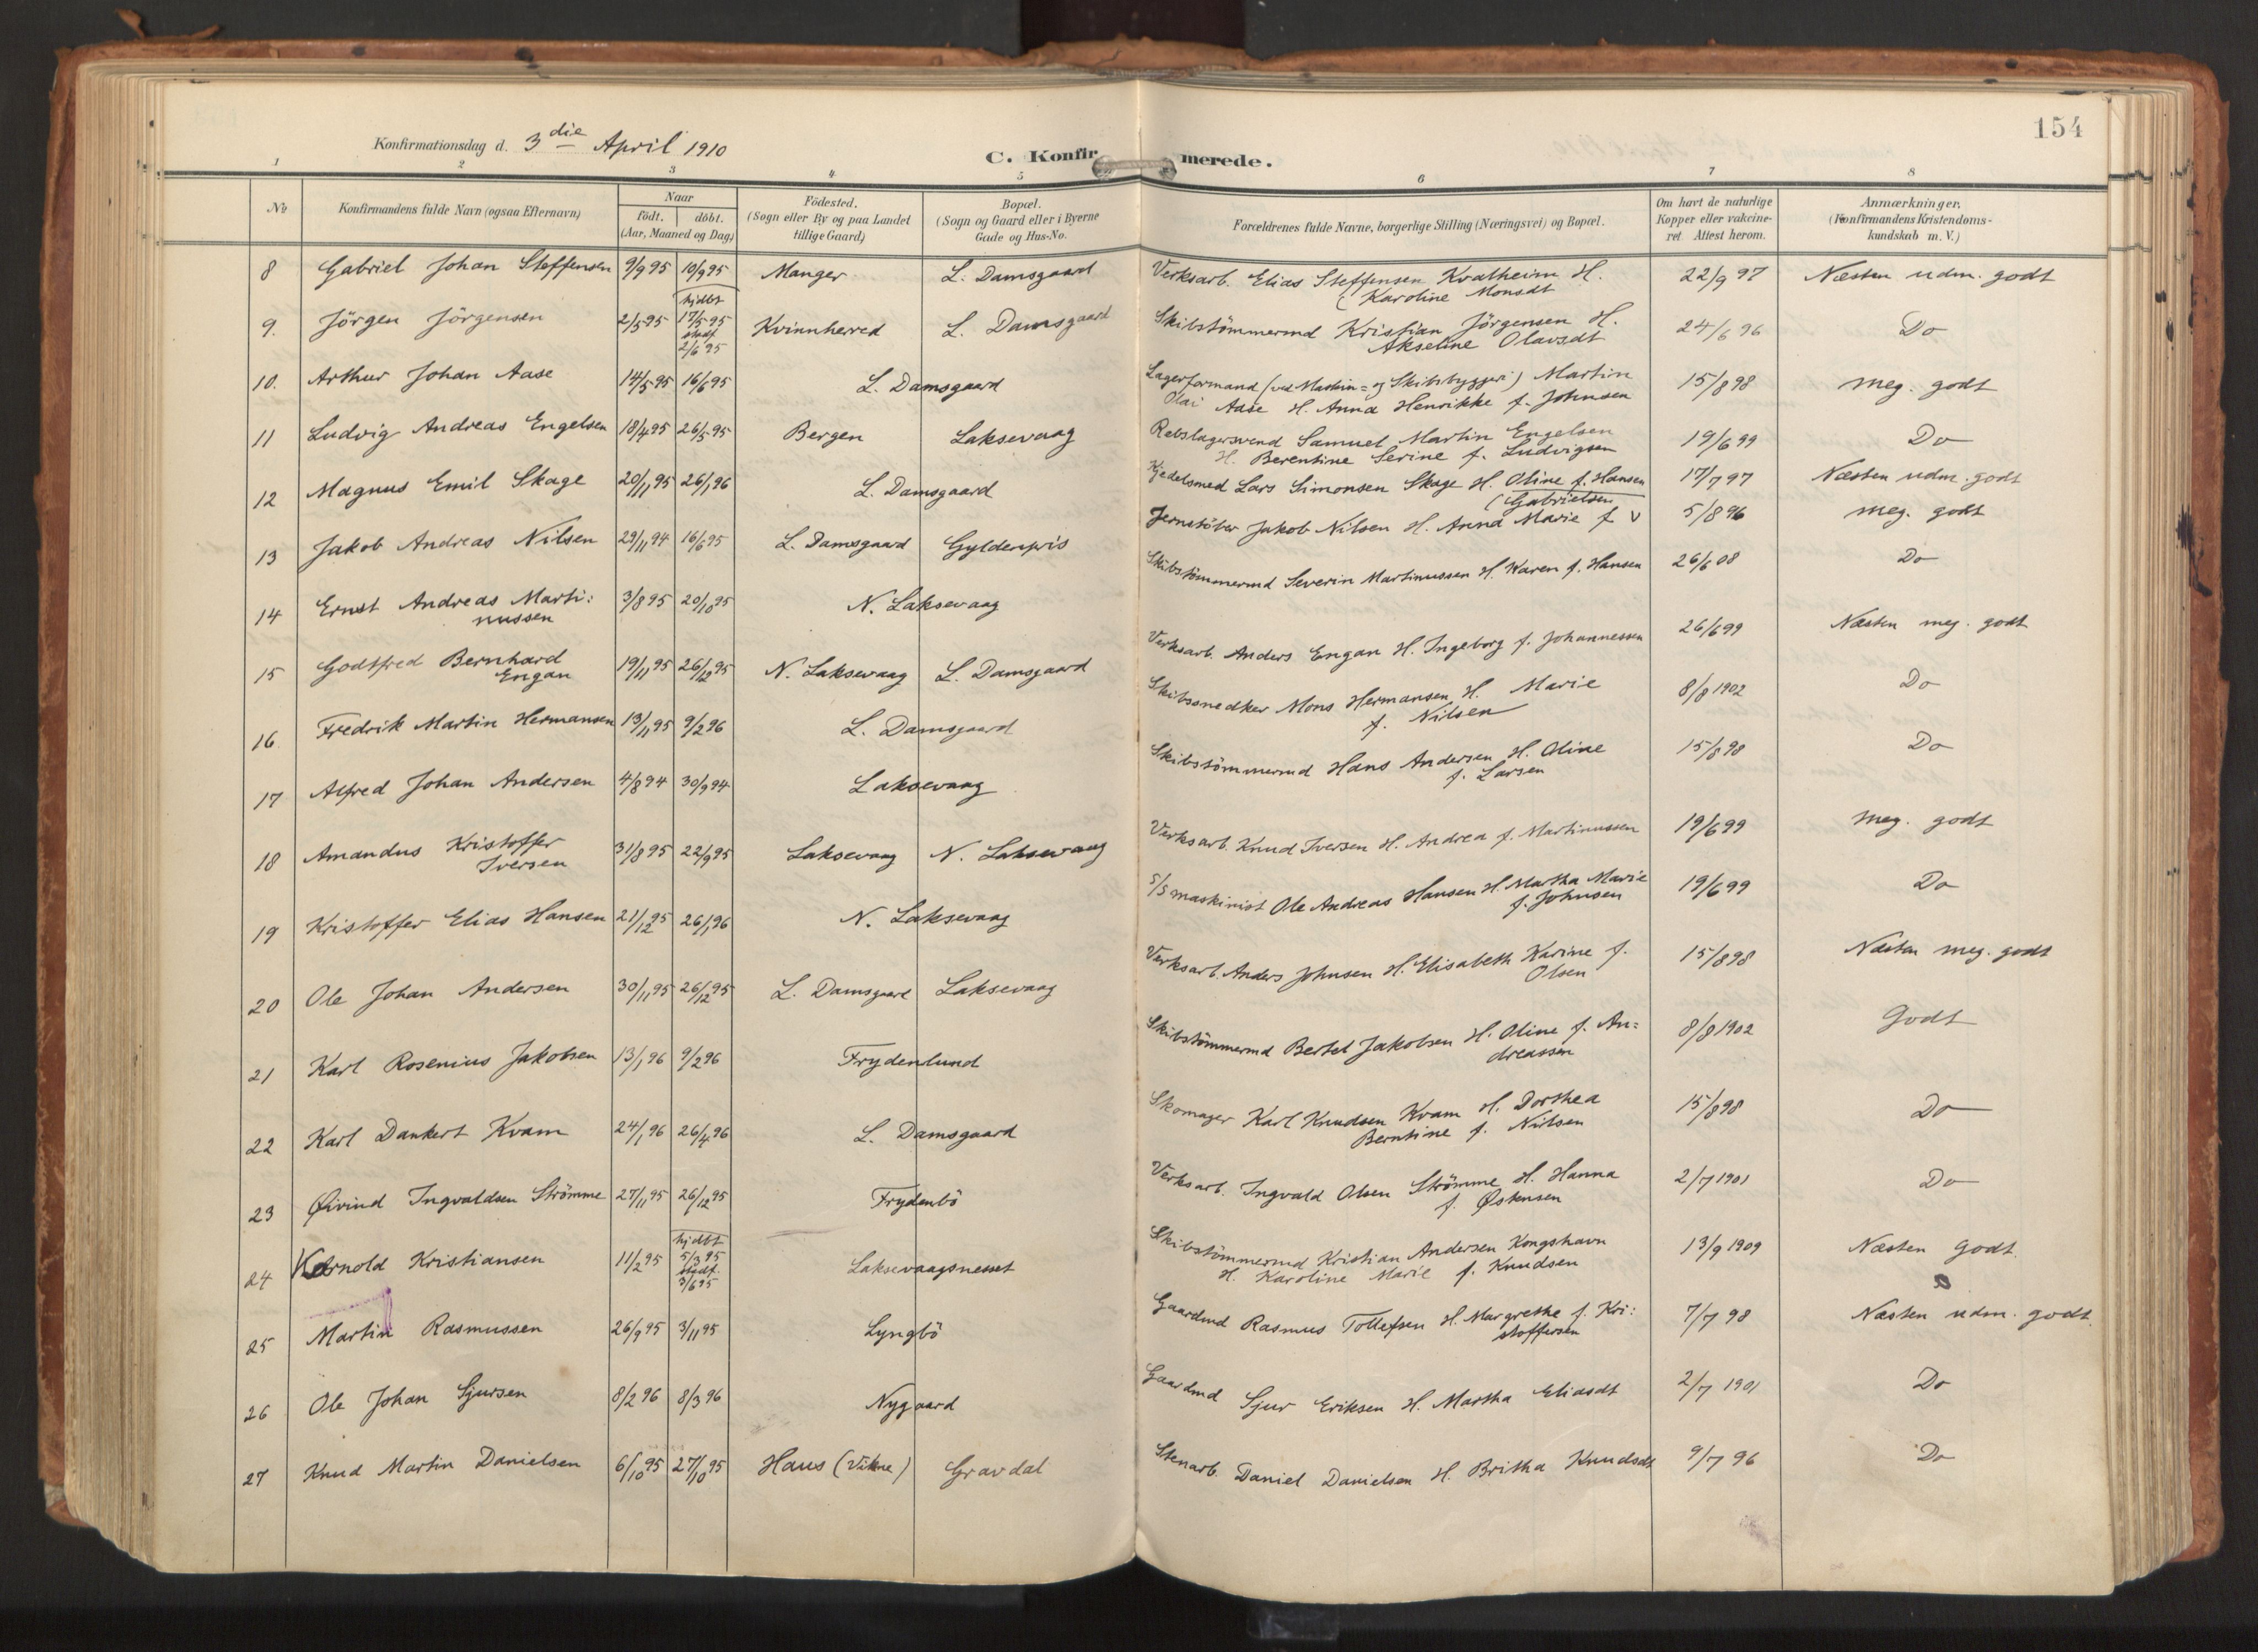 154
Konfirmationsdag d. 3die April 1910
C. Konfirmerede.
1 2 3 4 5 6 7 8
No
Konfirmandens fulde Navn (ogsaa Efternavn)
Naar
födt. döbt.
(Aar, Maaned og Dag)
Födested.
(Sogn eller By og paa Landet
tillige Gaard)
Bopæl.
(Sogn og Gaard eller i Byerne
Gade og Hus-No.
Forældrenes fulde Navne, borgerlige Stilling (Næringsvei) og Bopæl.
Om havt de naturlige
Kopper eller vakcine-
ret Attest herom.
Anmærkninger.
(Konfirmandens Kristendoms-
kundskab m. V.)
8 Gabriel Johan Steffensen 9/9 95 10/9 95 Manger L. Damsgaard Verksarb. Elias Steffensen Kvalheim H. 22/9 97 Næsten udm. godt
( Karoline Monsdt
9. Jörgen Jörgensen 2/5 95 hjdbt 17/5 95 stadf 2/6 95 Kvinnherred L. Damsgaard Skibstömmermd Kristian Jörgensen H. 24/6 96 Do
Akseline Olavsdt
10. Arthur Johan Aase 14/5 95 16/6 95 L. Damsgaard Lagerformand (ved Maskin= og Skibsbyggeri) Martin 15/8 98 meg. godt
Olai Aase H. Anna Henrikke f. Johnsen
11 Ludvig Andreas Engelsen 18/4 95 26/5 95 Bergen Laksevaag Rebslagersvend Samuel Martin Engelsen 19/6 99 Do
H. Berentine Serine f. Ludvigsen
12 Magnus Emil Skage 20/11 95 26/1 96 L. Damsgaard Kjedelsmed Lars Simonsen Skage H. Oline f. Hansen 17/7 97 Næsten udm. godt
(Gabrielsen
13 Jakob Andreas Nilsen 29/11 94 16/6 95 L. Damsgaard Gyldenpris Jernstöber Jakob Nilsen H. Anna Marie f v 5/8 96 meg. godt
14 Ernst Andreas Marti: 3/8 95 20/10 95 N. Laksevaag Skibstömmermd Severin Martinussen H. Karen f. Hansen 26/6 08 Do
nussen
15 Godtfred Bernhard 19/11 95 26/12 95 N. Laksevaag L. Damsgaard Verksarb. Anders Engan H. Ingeborg f. Johannessen 26/6 99 Næsten meg. godt
Engan
16 Fredrik Martin Hermansen 13/11 95 9/2 96 L. Damsgaard Skibssnedker Mons Hermansen H. Marie 8/8 1902 Do
f. Nilsen
17 Alfred Johan Andersen 4/8 94 30/9 94 Laksevaag Skibstömmermd Hans Andersen H. Oline 15/8 98 Do
f. Larsen
18 Amandus Kristoffer 31/8 95 22/9 95 Laksevaag N. Laksevaag Verksarb. Knud Iversen H. Andrea f. Martinussen 19/6 99 meg. godt
Iversen
19 Kristoffer Elias Hansen 21/12 95 26/1 96 N. Laksevaag S/S maskinist Ole Andreas Hansen H. Martha Marie 19/6 99 Do
f. Johnsen
20 Ole Johan Andersen 30/11 95 26/12 95 L. Damsgaard Laksevaag Verksarb. Anders Johnsen H. Elisabeth Karine f. 15/8 98 Næsten meg. godt
Olsen
21 Karl Rosenius Jakobsen 13/1 96 9/2 96 Frydenlund Skibstömmermd Bertel Jakobsen H. Oline f. An= 8/8 1902 Godt
dreassen
22 Karl Dankert Kvam 24/1 96 26/4 96 L. Damsgaard Skomager Karl Knudsen Kvam H. Dorthea 15/8 98 Do
Berntine f. Nilsen
23 Øivind Ingvaldsen Strömme 27/11 95 26/12 95 Frydenbö Verksarb. Ingvald Olsen Strömme H. Hanna 2/7 1901 Do
f. Østensen
24 Arnold Kristiansen 11/2 95 hjdbt 5/3 95 stadf. 3/6 95 Laksevaagsnesset Skibstömmermd Kristian Andersen Kongshavn 13/9 1909 Næsten Godt.
H. Karoline Marie f. Knudsen
25 Martin Rasmussen 26/9 95 3/11 95 Lyngbö Gaardmd Rasmus Tollefsen H. Margrethe f. Kri: 7/7 98 Næsten udm. godt.
stoffersen
26 Ole Johan Sjursen 8/2 96 8/3 96 Nygaard Gaardmd Sjur Eriksen H. Martha Eliasdt 2/7 1901 Do
27 Knud Martin Danielsen 6/10 95 27/10 95 Haus (Vikne) Gravdal Stenarb. Daniel Danielsen H. Britha Knudsdt 9/7 96 Do